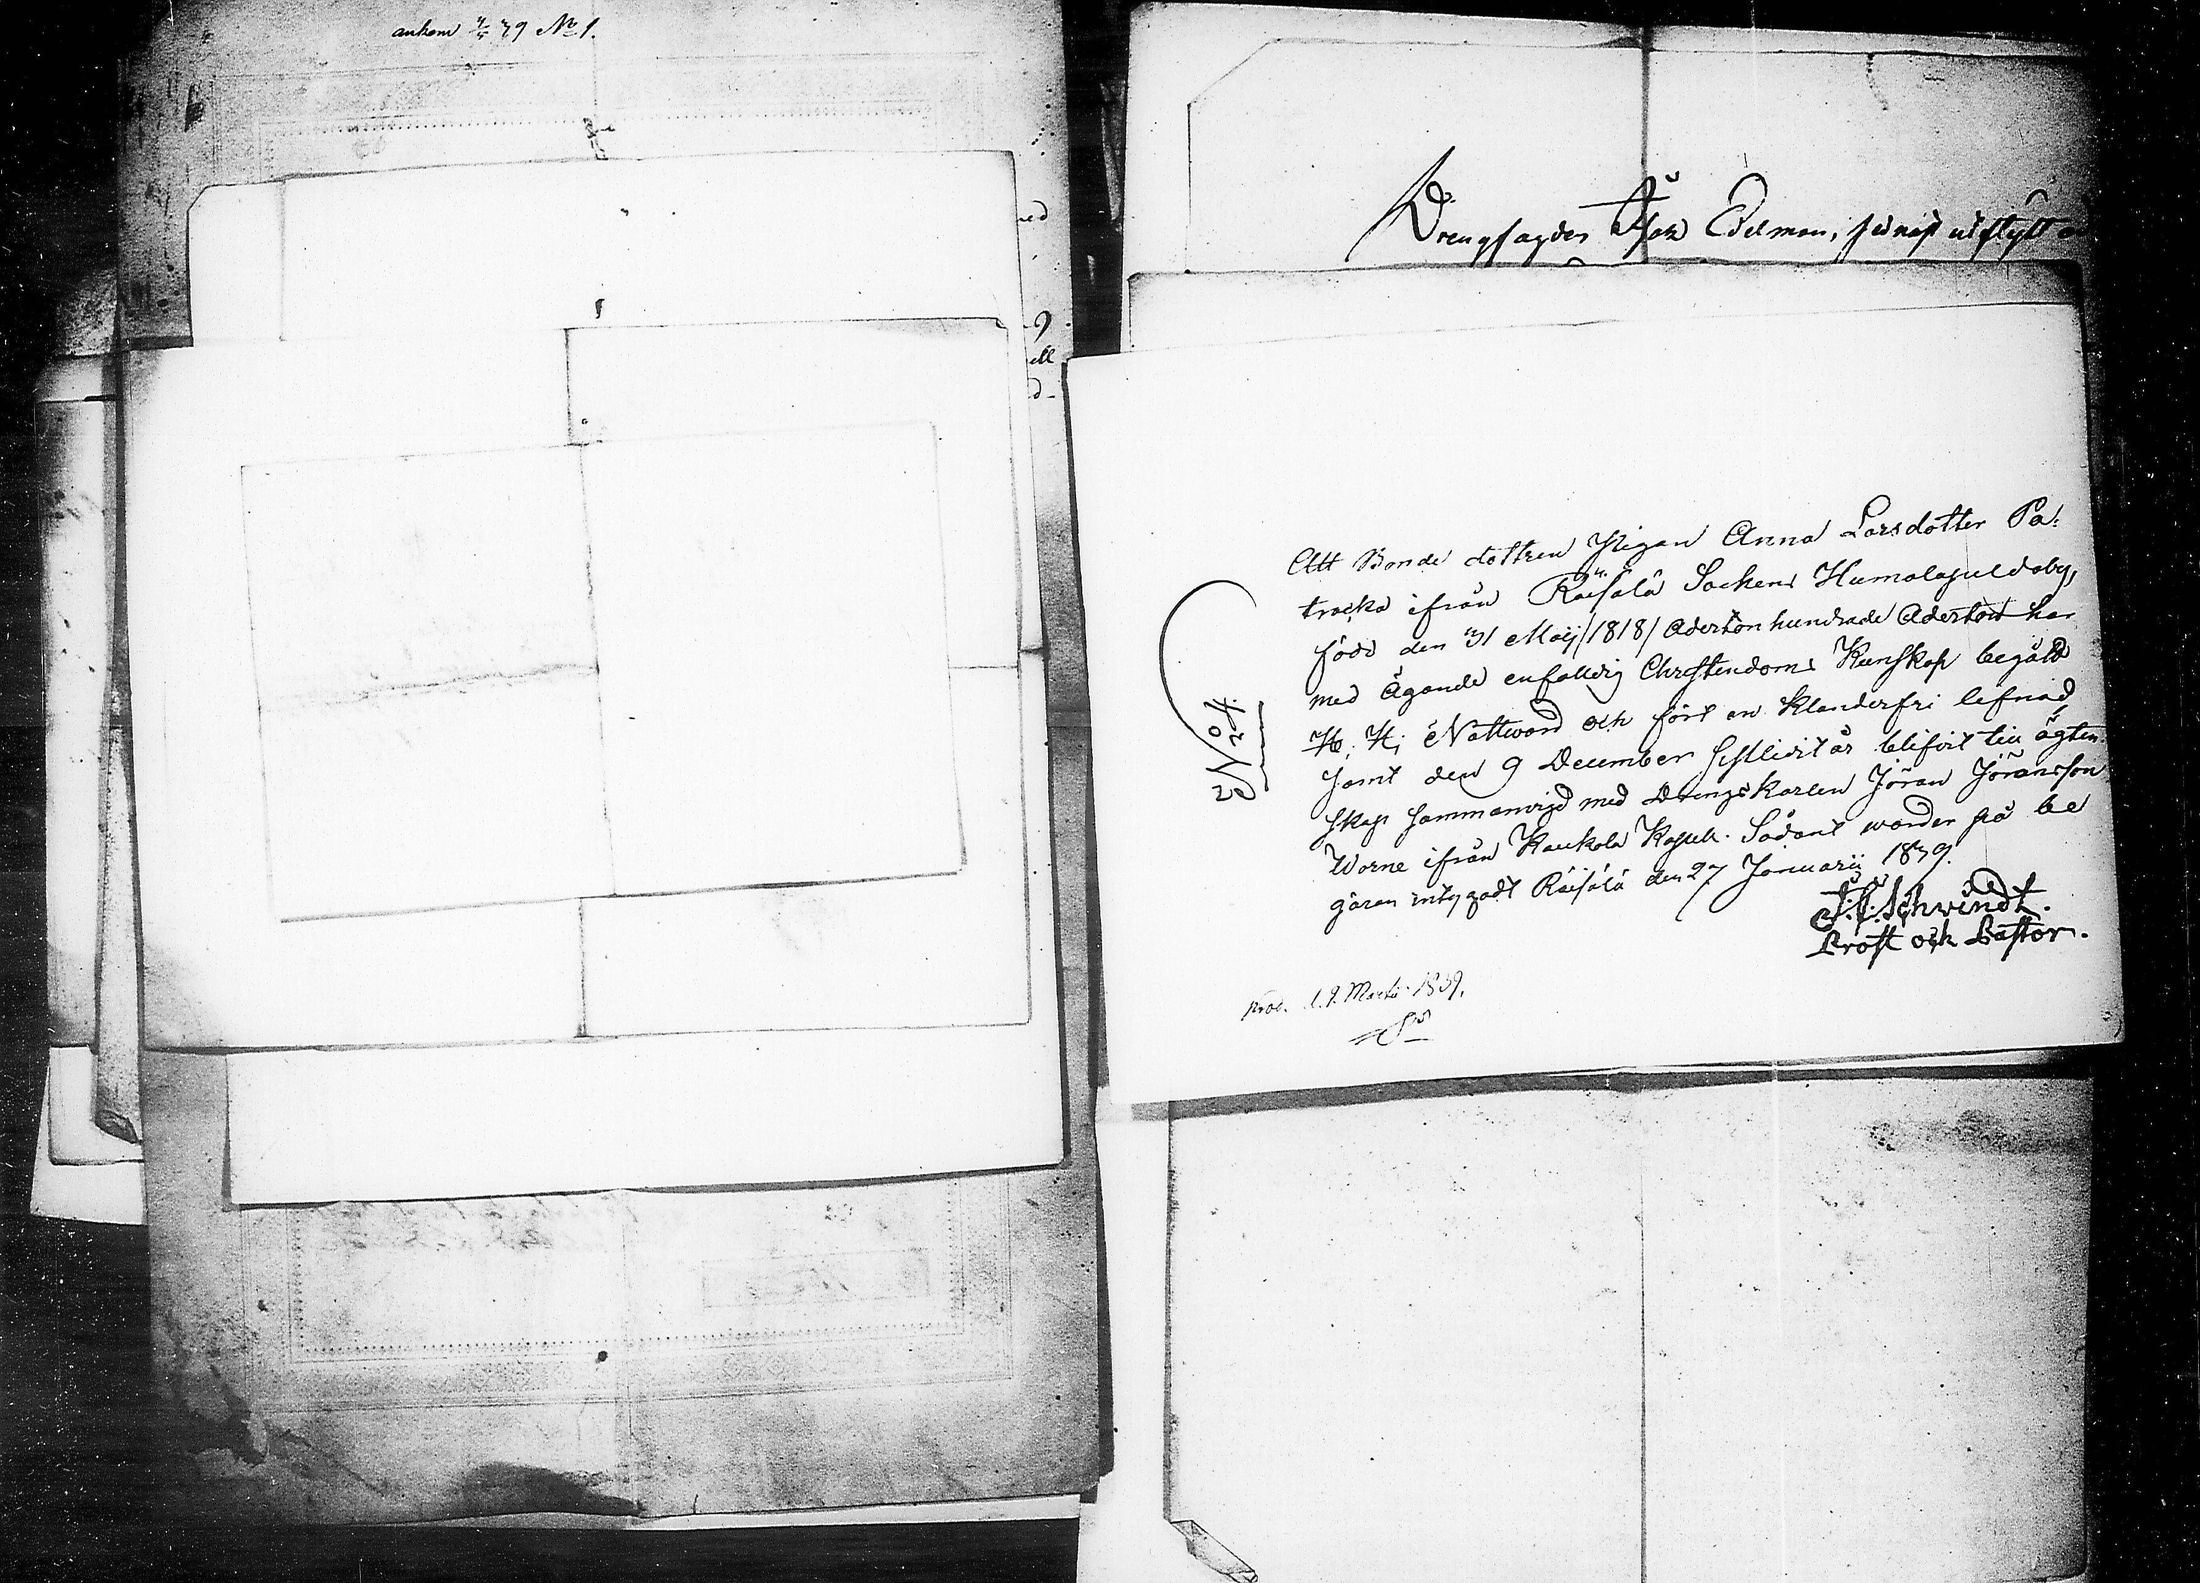 ankom 4/4 39 No 1.
Drengsagder Isak Edelman, sednast utflytt
Att Bonde dottren Pigan Anna Larsdotter Pa:
tracka ifrån Räisälä Sockens Humalajneldaby,
född den 31 Maij /1818/ Adertonhundrade Aderton har
med ägande enfaldig Christendoms Kunskap begådt
H. H. Nattward och fört en klanderfri lefnad,
samt den 9 December sistledit år blifvit till ägten:
skap sammanvigd med Drengskarlen Jöran Jöransson
Worne ifrån Kaukola Kapell. Sådant warder på be
gäran intygadt Räisälä den 27 Januarii 1839.
J. J. Schvindt.
Prost och Pastor.
No 24.
prod. d. 9. Martii 1839.
ed
ell